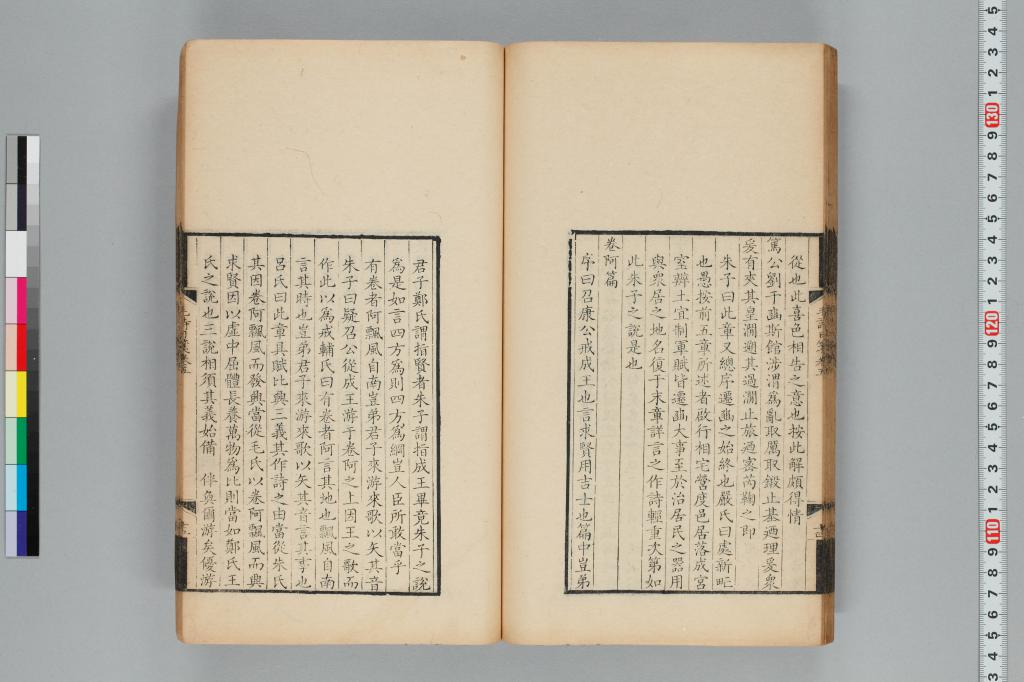 從也此喜色相告之意也按此解頗得情
篤公劉于豳斯館涉渭爲亂取厲取鍛止基迺理爰衆
爰有夾其皇澗遡其過澗止旅迺密芮鞫之即
朱子曰此章又總序遷豳之始終也嚴氏曰處新甿
也愚按前五章所述者啟行相宅營度邑居落成宮
室辨土宜制軍賦皆遷豳大事至於治居民之器用
與衆居之地名復于末章詳言之作詩輕重次第如
此朱子之說是也
卷阿篇
序曰召康公戒成王也言求賢用吉士也篇中豈弟
君子鄭氏謂指賢者朱子謂指成王畢竟朱子之說
爲是如言四方爲則四方爲綱豈人臣所敢當乎
有卷者阿飄風自南豈弟君子來游來歌以矢其音
朱子曰疑召公從成王游于卷阿之上因王之歌而
作此以爲戒輔氏曰有卷者阿言其地也飄風自南
言其時也豈弟君子來游來歌以矢其音言其事也
呂氏曰此章具賦比興三義其作詩之由當從朱氏
其因卷阿飄風而發興當從毛氏以卷阿飄風而興
求賢因以虛中屈體長養萬物爲比則當如鄭氏王
氏之說也三說相須其義始備 伴奐爾游矣優游